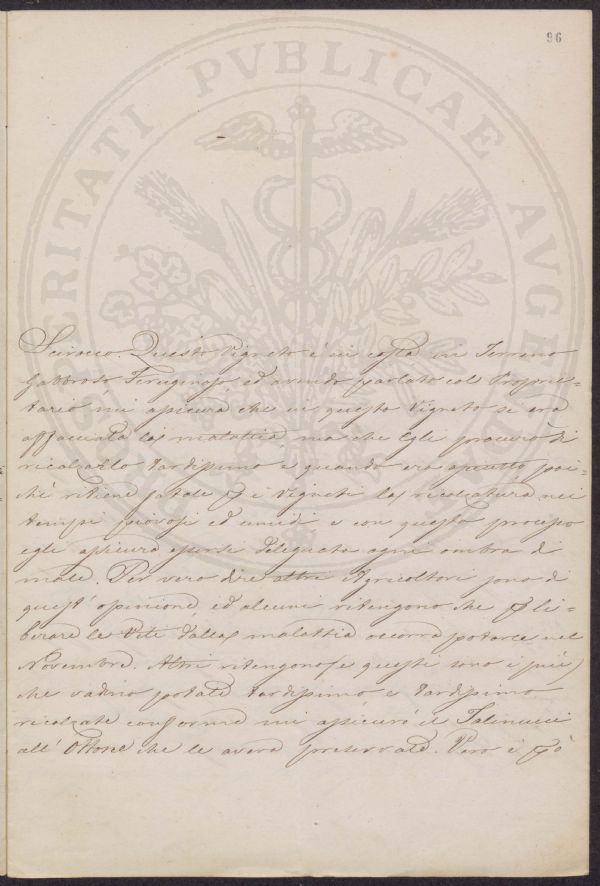 96
PROSPERITATI PVBLICAE AVGENDAE
Scirocco. Questo Vigneto è in costa in Terreno
Gabbroso Feruginoso, ed avendo parlato col Proprie=
tario mi assicurò che in questo Vigneto si era
affacciata la malattia, ma che Egli procurò di
ricalzarlo tardissimo e quando era asciutto poi=
chè ritiene fatale p i Vigneti la ricalcatura nei
tempi piovosi ed umidi e con questo processo
egli assicura essersi dileguata ogni ombra di
male. Per vero dire altri Agricoltori sono di
quest' opinione, ed alcuni ritengono che p li=
berare le Viti dalla malattia occorra potarle nel
Novembre. Altri ritengono (e questi sono i più)
che vadino potate tardissimo e tardissimo
ricalzate conforme mi assicurò il Talinucci
all' Ottone che le aveva preservate. Vero è p ò